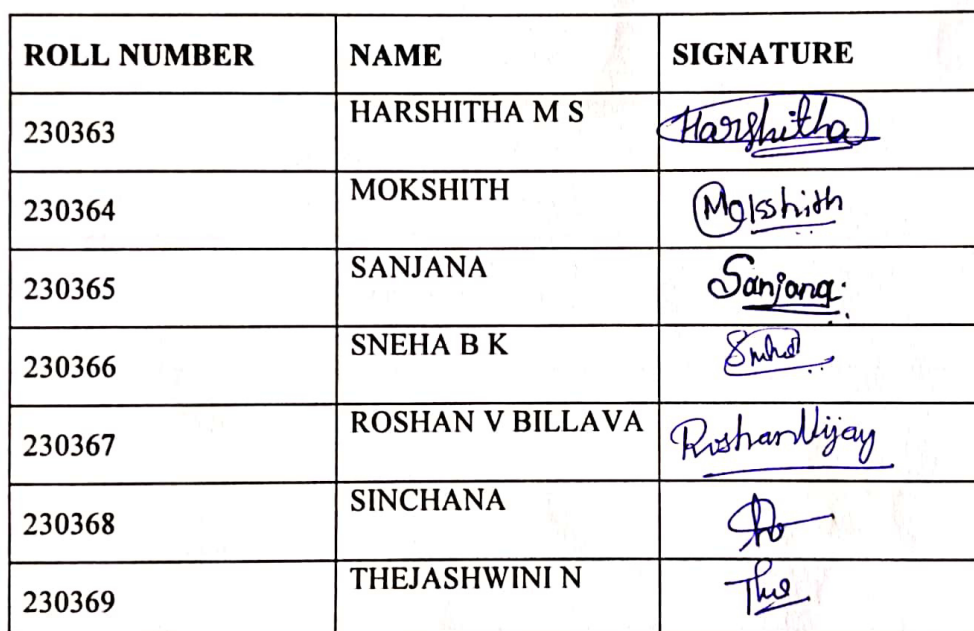 ROLL NUMBER NAME SIGNATURE
230363 HARSHITHA M S Harshitha
230364 MOKSHITH Mokshith
230365 SANJANA Sanjana
230366 SNEHA B K
230367 ROSHAN V BILLAVA RoshanVijay
230368 SINCHANA
230369 THEJASHWINI N